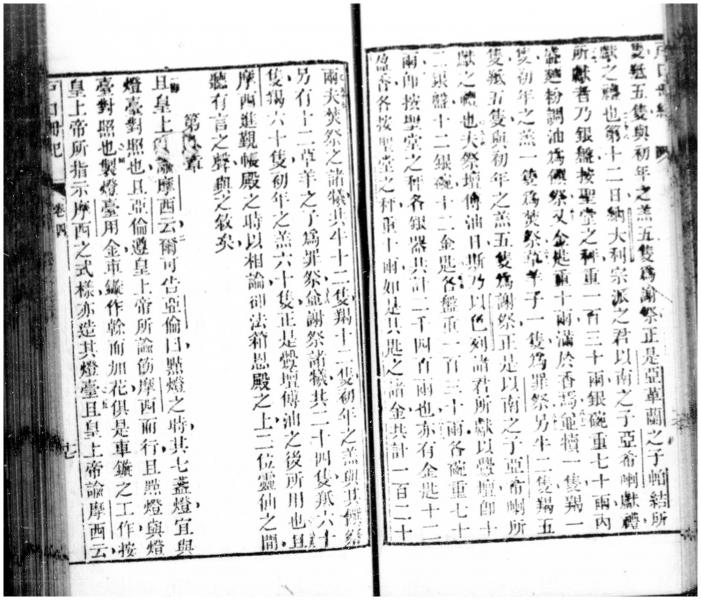 隻羝五隻與初年之羔五隻爲謝祭正是亞革蘭之子帕結所
獻之禮也第十二日納大利宗派之君以南之子亞希喇獻禮
所獻者乃銀盤按聖堂之秤重一百三十兩銀碗重七十兩內
盛麵粉調油爲饌祭又金匙重十兩滿於香焉犍犢一隻羯一
隻初年之羔一隻爲焚祭草羊子一隻爲罪祭另牛二隻羯五
隻羝五隻與初年之羔五隻爲謝祭正是以南之子亞希喇所
獻之禮也夫祭壇傅油日斯乃以色列諸君所獻以釁壇卽十
二銀盤十二銀碗十二金匙各盤重一百三十兩各碗重七十
兩而按聖堂之秤各銀器共計二千四百兩也亦有金匙十二
盈香各按聖堂之秤重十兩如是其匙之諸金共計一百二十
兩夫焚祭之諸犢共牛十二隻羯十二隻初年之羔與其饌祭
另有十二草羊之子爲罪祭並謝祭諸犢共二十四隻羝六十
隻羯六十隻初年之羔六十隻正是釁壇傅油之後所用也且
摩西進觐帳殿之時以相論卻法箱恩殿之上二位靈仙之間
聽有言之聲與之敘矣
第八章
且皇上帝諭摩西云爾可告亞倫曰點燈之時其七盞燈宜與
燈臺對照也且亞倫遵皇上帝所諭飭摩西而行且點燈與燈
臺對照也製燈臺用金車鏇作幹而加花俱是車鏇之工作按
皇上帝所指示摩西之式樣亦造其燈臺且皇上帝諭摩西云
戶口冊紀 卷四